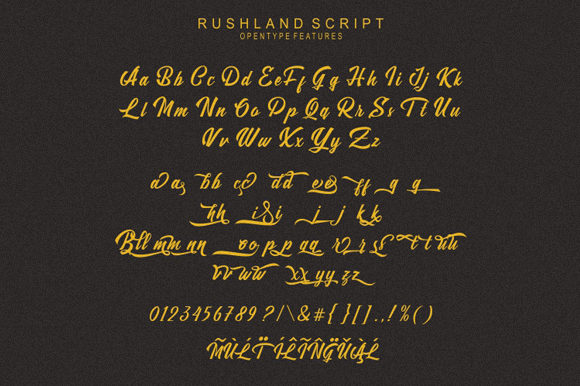 RUSHLAND SCRIPT
OPENTYPE FEATURES
Aa Bb Cc Dd Ee Ff Gg Hh Ii Jj Kk
Ll Mm Nn Oo Pp Qq Rr Ss Tt Uu
Vv Ww Xx Yy Zz
a a bb cc dd ee ff g g
hh i Si j j k k
Bll mm nn oo pp qq r r ss t t uu
vv ww xx yy zz
0123456789 ?/|\&#{}[].,!%()